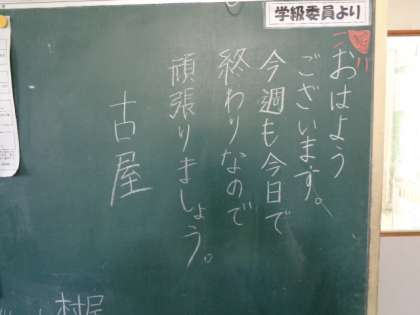 学級委員より
おはよう
ございます。
今週も今日で
終わりなので
頑張りましょう。
古屋